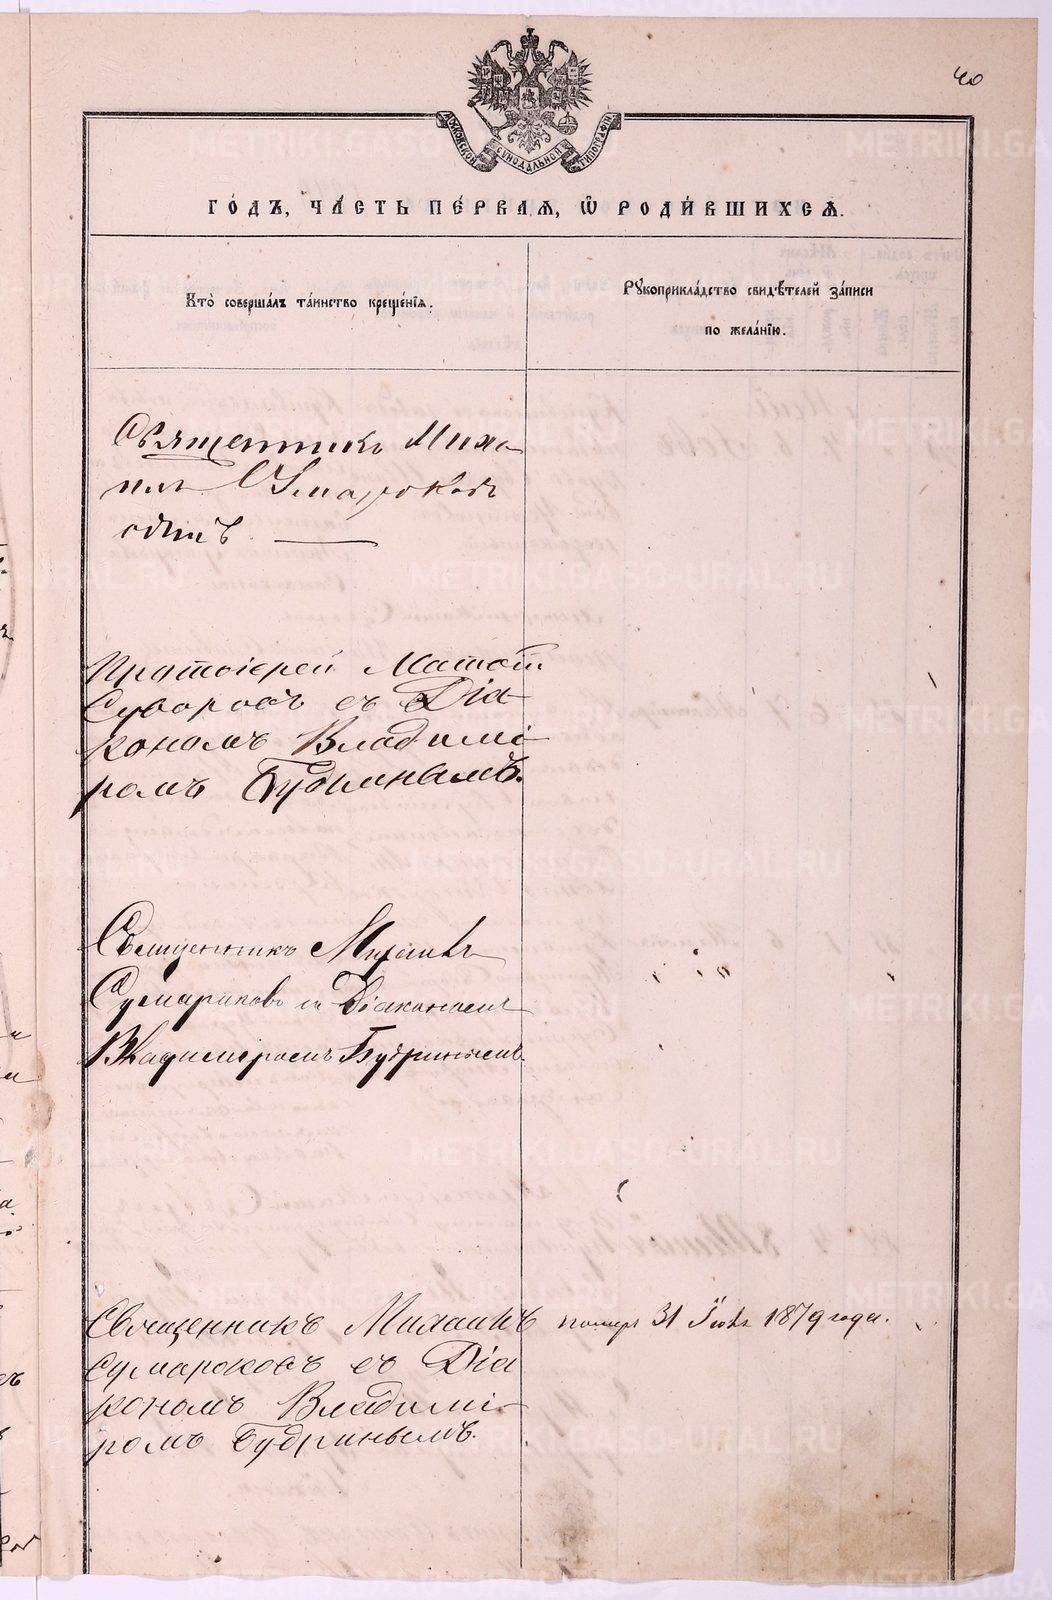 40
МОСКОВСКОЙ СУНОДАЛЬНОЙ ТИПОГРАФІИ
ГО́ДЪ, ЧА́СТЬ ПЕ́РВАѦ, Ѡ҆ РОДИ́ВШИХСѦ.
Кто̀ соверша́лъ та́инство креще́нїѧ.
Рꙋкоприкла́дство свидѣ́телей за́писи
по жела́нїю.
Священникъ Миха
илъ Сумароковъ
одинъ.
Протоіерей
Суворовъ съ Діа
кономъ Владимі
ромъ Будринымъ.
Священникъ Михаилъ
Сумароковъ съ Діакономъ
Владиміромъ Будринымъ.
Священникъ Михаилъ
Сумароковъ съ Діа
кономъ Владимі
ромъ Будринымъ.
померъ 31 1879 года.
METRIKI.GASO-URAL.RU